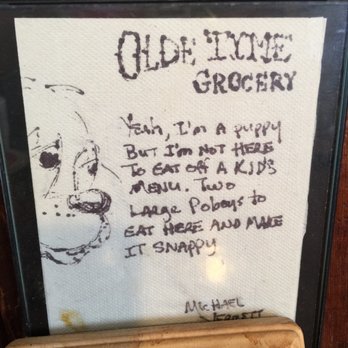 OLDE TYME
GROCERY
Yeah, I'm a puppy
BUT I'm NOT HERE
TO EAT OFF A KID'S
MENU. TWO
LARGE Poboys to
EAT HERE AND MAKE
IT SNAPPY
MICHAEL